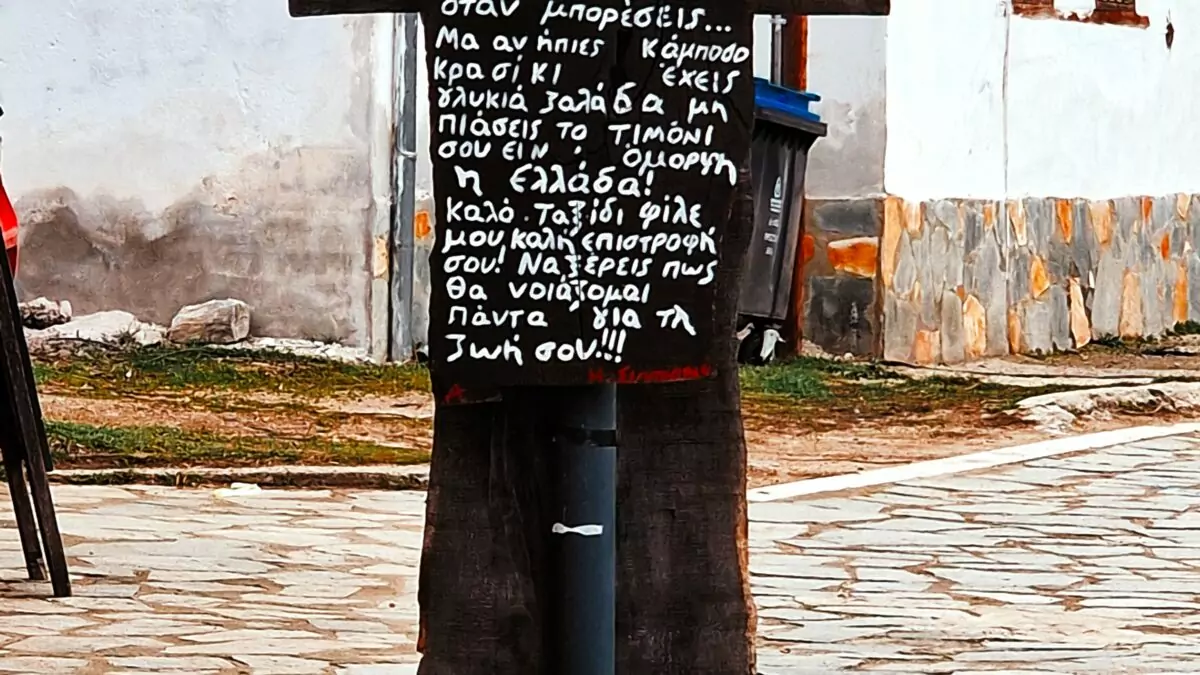 όταν μπορέσεις...
Μα αν ήπιες κάμποσο
κρασί κι έχεις
γλυκιά ζαλάδα μη
πιάσεις το τιμόνι
σου είν' όμορφη
η Ελλάδα!
Καλό ταξίδι φίλε
μου, καλή επιστροφή
σου! Να ξέρεις πως
θα νοιάζομαι
πάντα για τη
ζωή σου!!!